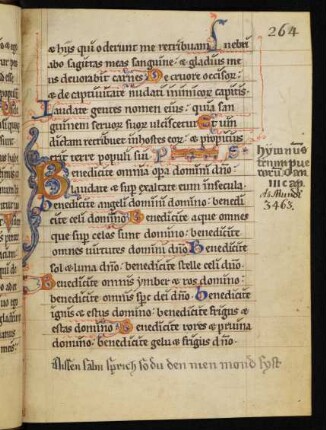 264
& hiis qui oderunt me retribuam. Inebri
abo sagittas meas sanguine. & gladius me
us devorabit carnes. De cruore occisor
& de captivitate nudati inimicorum capitis.
Laudate gentes nomen eius. quia san
guinem servorum suorum ulciscetur. Et vin
dictam retribuet in hostes eorum. & propicius
erit terre populi sui.
Benedicite omnia opera domini dno.
laudate & superexaltate eum in secula.
Benedicite angeli domini domino. benedi
cite celi domino. Benedicite aque omnes
que super celos sunt domino. benedicite
omnes virtutes domini dno. Benedicite
sol & luna dno. benedicite stelle celi dno.
Benedicite omnis ymber & ros domino.
benedicite omnis sps dei dno. benedicite
ignis & estus domino. benedicite frigus &
estas domino. Benedicite rores & pruina
domino. benedicite gelu & frigus dno.
hymnus
trium pue
rorum
III cap.
3463.
Dissen salm sprich so du den nien mond syst